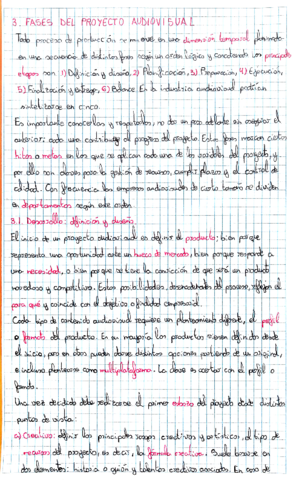 3. FASES DEL PROYECTO AUDIOVISUAL
Todo proceso de producción se mueve en una dimensión temporal, planeando
en una secuencia de distintas fases según un orden lógico y considerando las principales
etapas son 1) Definición y diseño, 2) Planificación, 3) Preparación, 4) Ejecución,
5) Finalización y entrega, 6) Balance. En la industria audiovisual podrían
sintetizarse en cinco.
Es importante conocerlas y respetarlas, no dar un paso adelante sin asegurar el
anterior; cada una contribuye al progreso del proyecto. Estas fases marcan ciertos
hitos o metas en los que se aplican cada una de las variables del proyecto, y
por ello son claves para la gestión de recursos, cumplir plazos y el control de
calidad. Con frecuencia las empresas audiovisuales de cierto tamaño se dividen
en departamentos según este orden.
3.1. Desarrollo: definición y diseño.
El inicio de un proyecto audiovisual es definir el producto; bien porque
representa una oportunidad ante un hueco de mercado, bien porque responde a
una necesidad, o bien porque se tiene la convicción de que será un producto
novedoso y competitivo. Estas posibilidades, desencadenantes del proceso, reflejan el
para qué y coincide con el objetivo o finalidad empresarial.
Cada tipo de contenido audiovisual requiere un planteamiento diferente, el perfil
o formato del producto. En su mayoría los productos vienen definidos desde
el inicio, pero en otros pueden darse distintas opciones partiendo de un original,
e incluso plantearse como multiplataforma. La clave es acertar con el perfil o
formato.
Una vez decidido debe realizarse el primer esbozo del proyecto desde distintos
puntos de vista:
a) Creativo: definir los principales rasgos creativos y artísticos, el tipo de
recursos del proyecto, es decir, la fórmula creativa. Suele basarse en
dos elementos: historia o guión y talentos creativos asociados. En caso de